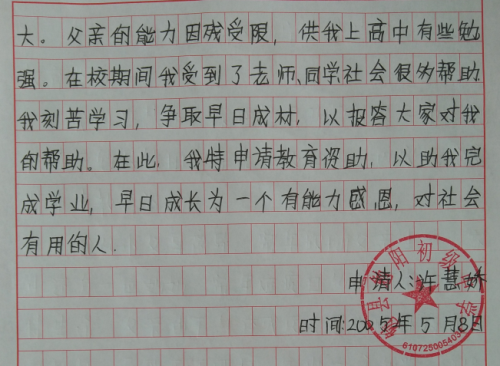 大。父亲的能力因残受限，供我上高中有些勉
强。在校期间我受到了老师、同学社会很多帮助
我刻苦学习，争取早日成材，以报答大家对我
的帮助。在此，我特申请教育资助，以助我完
成学业，早日成长为一个有能力感恩，对社会
有用的人.
申请人:许慧娇
时间:2005年5月8日
阳初级
6107250054036